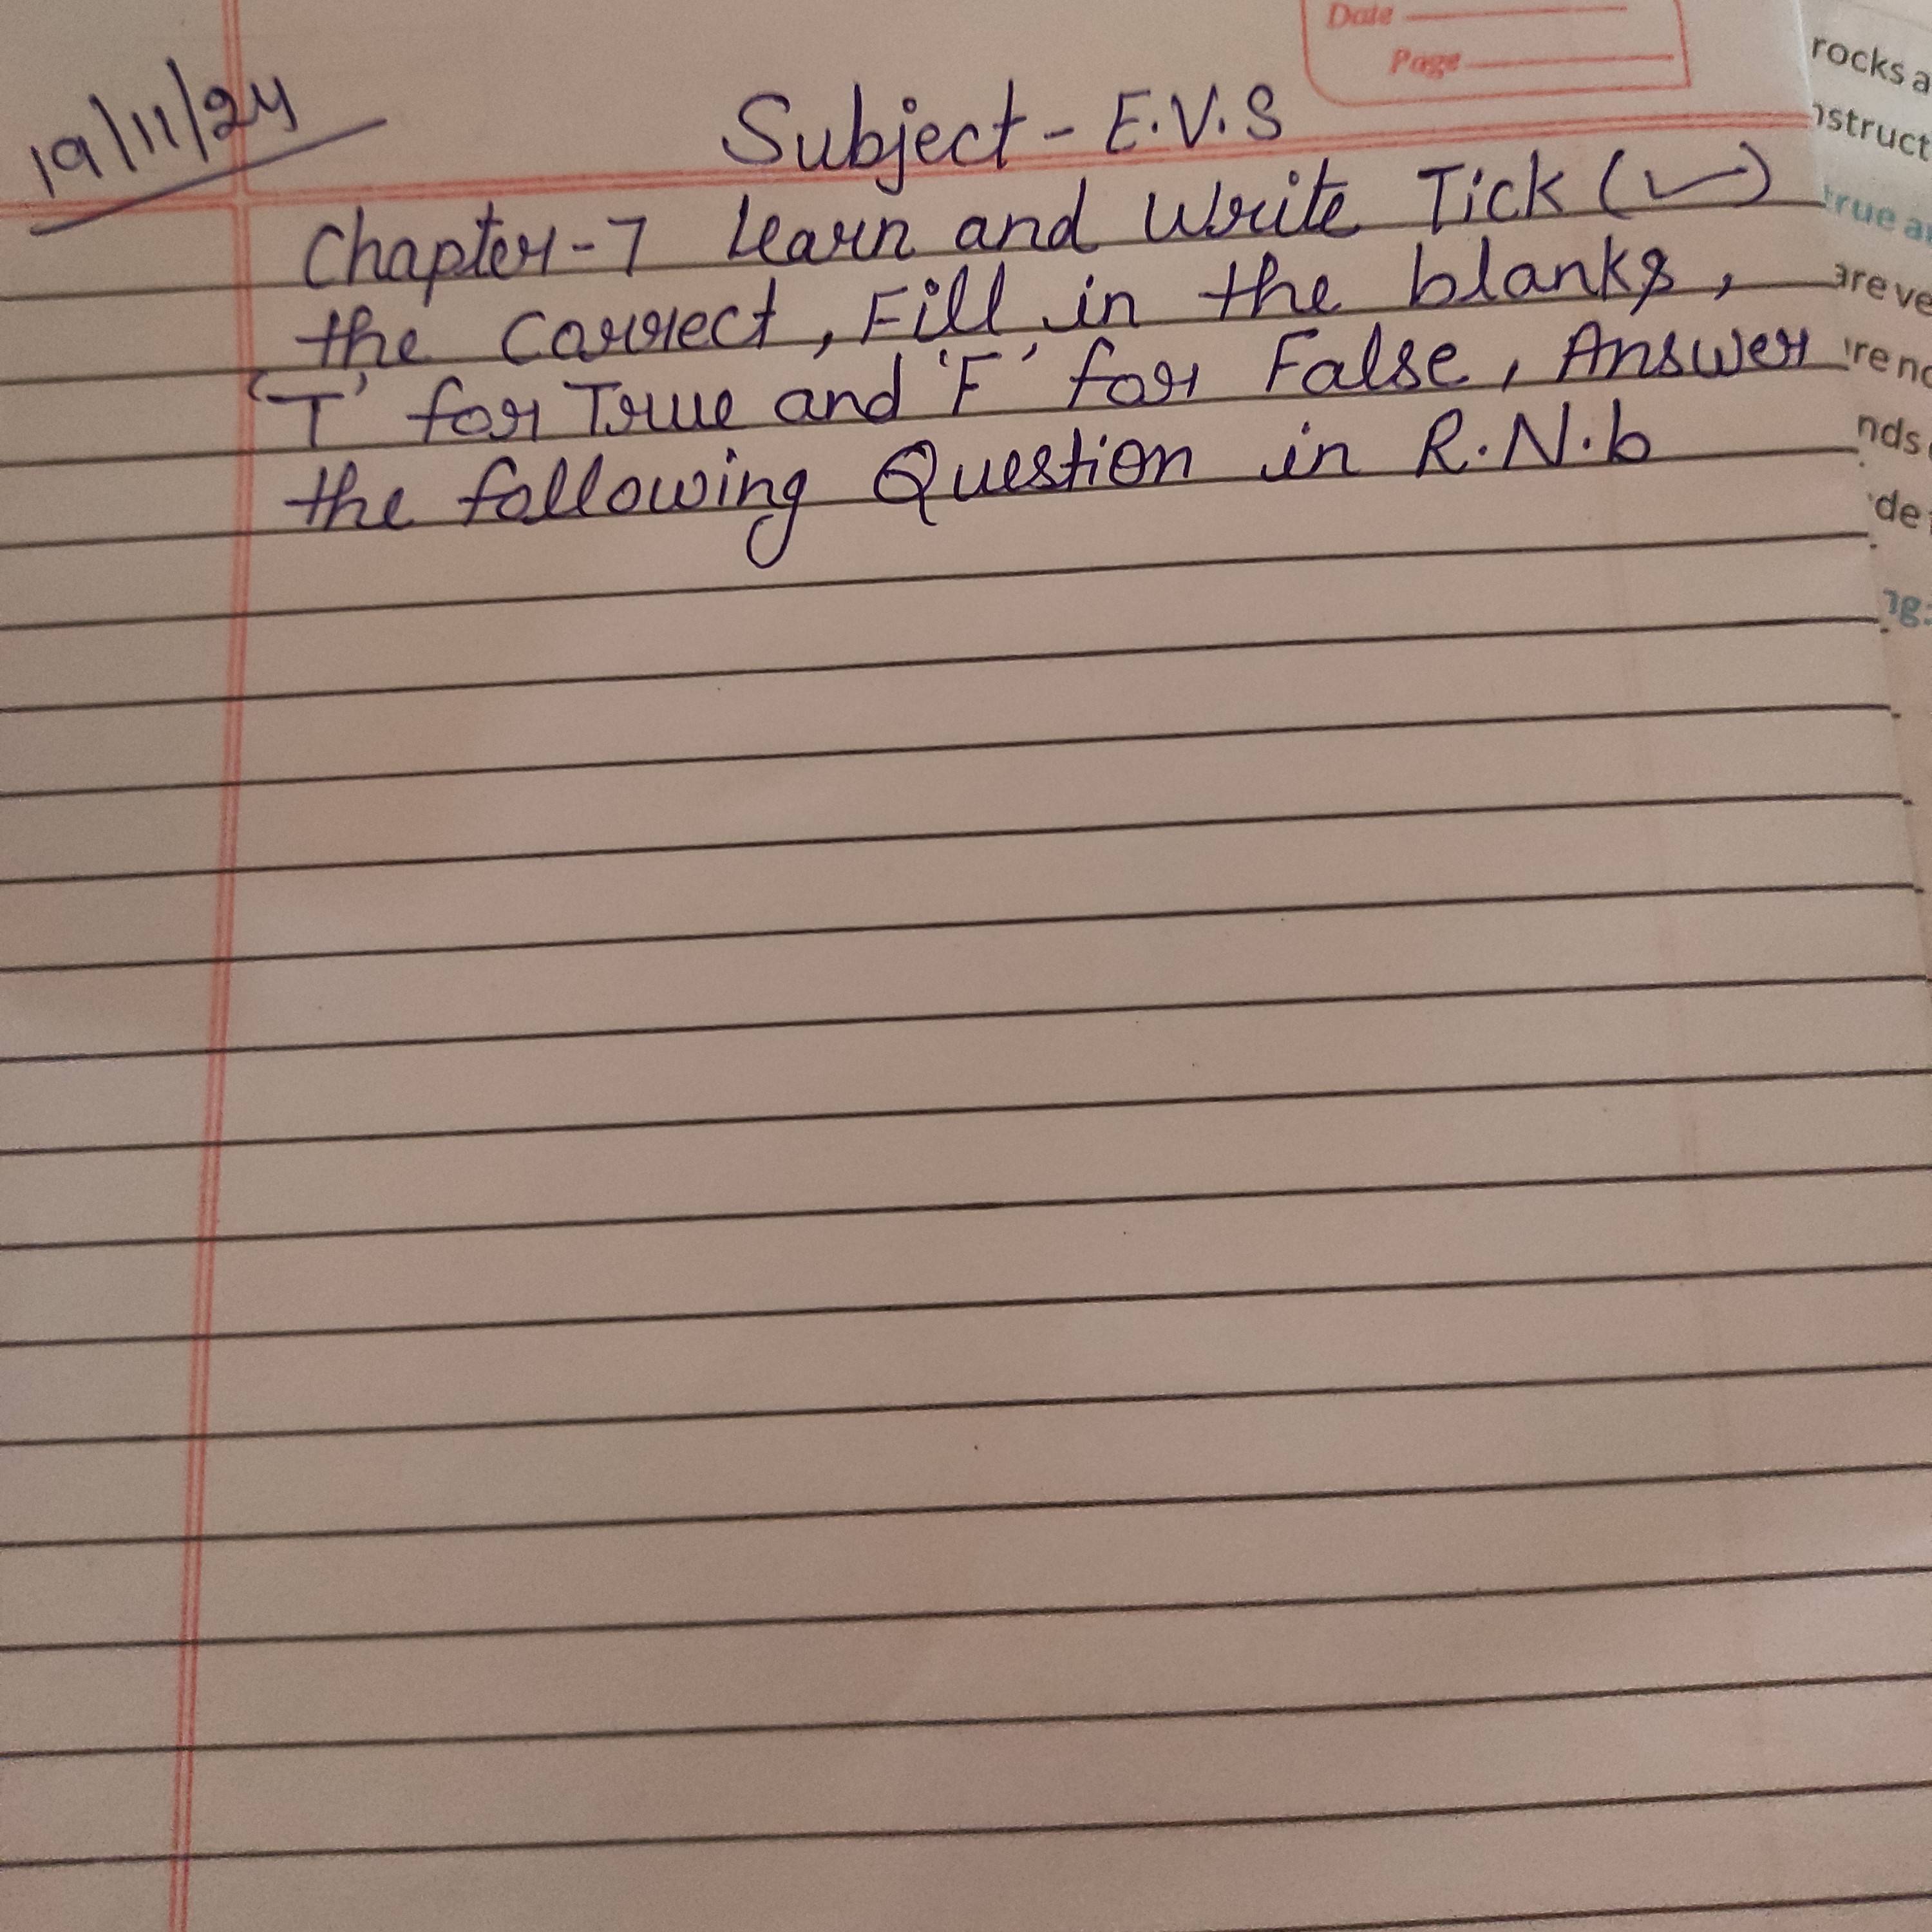 Date
Page
19/11/24
Subject - E.V.S
Chapter-7 Learn and Write Tick (✓)
the Correct, Fill in the blanks,
'T' for True and 'F' for False, Answer
the following Question in R.N.b
rocks a
nstruct
true a
are ve
re no
nds
de
ng: